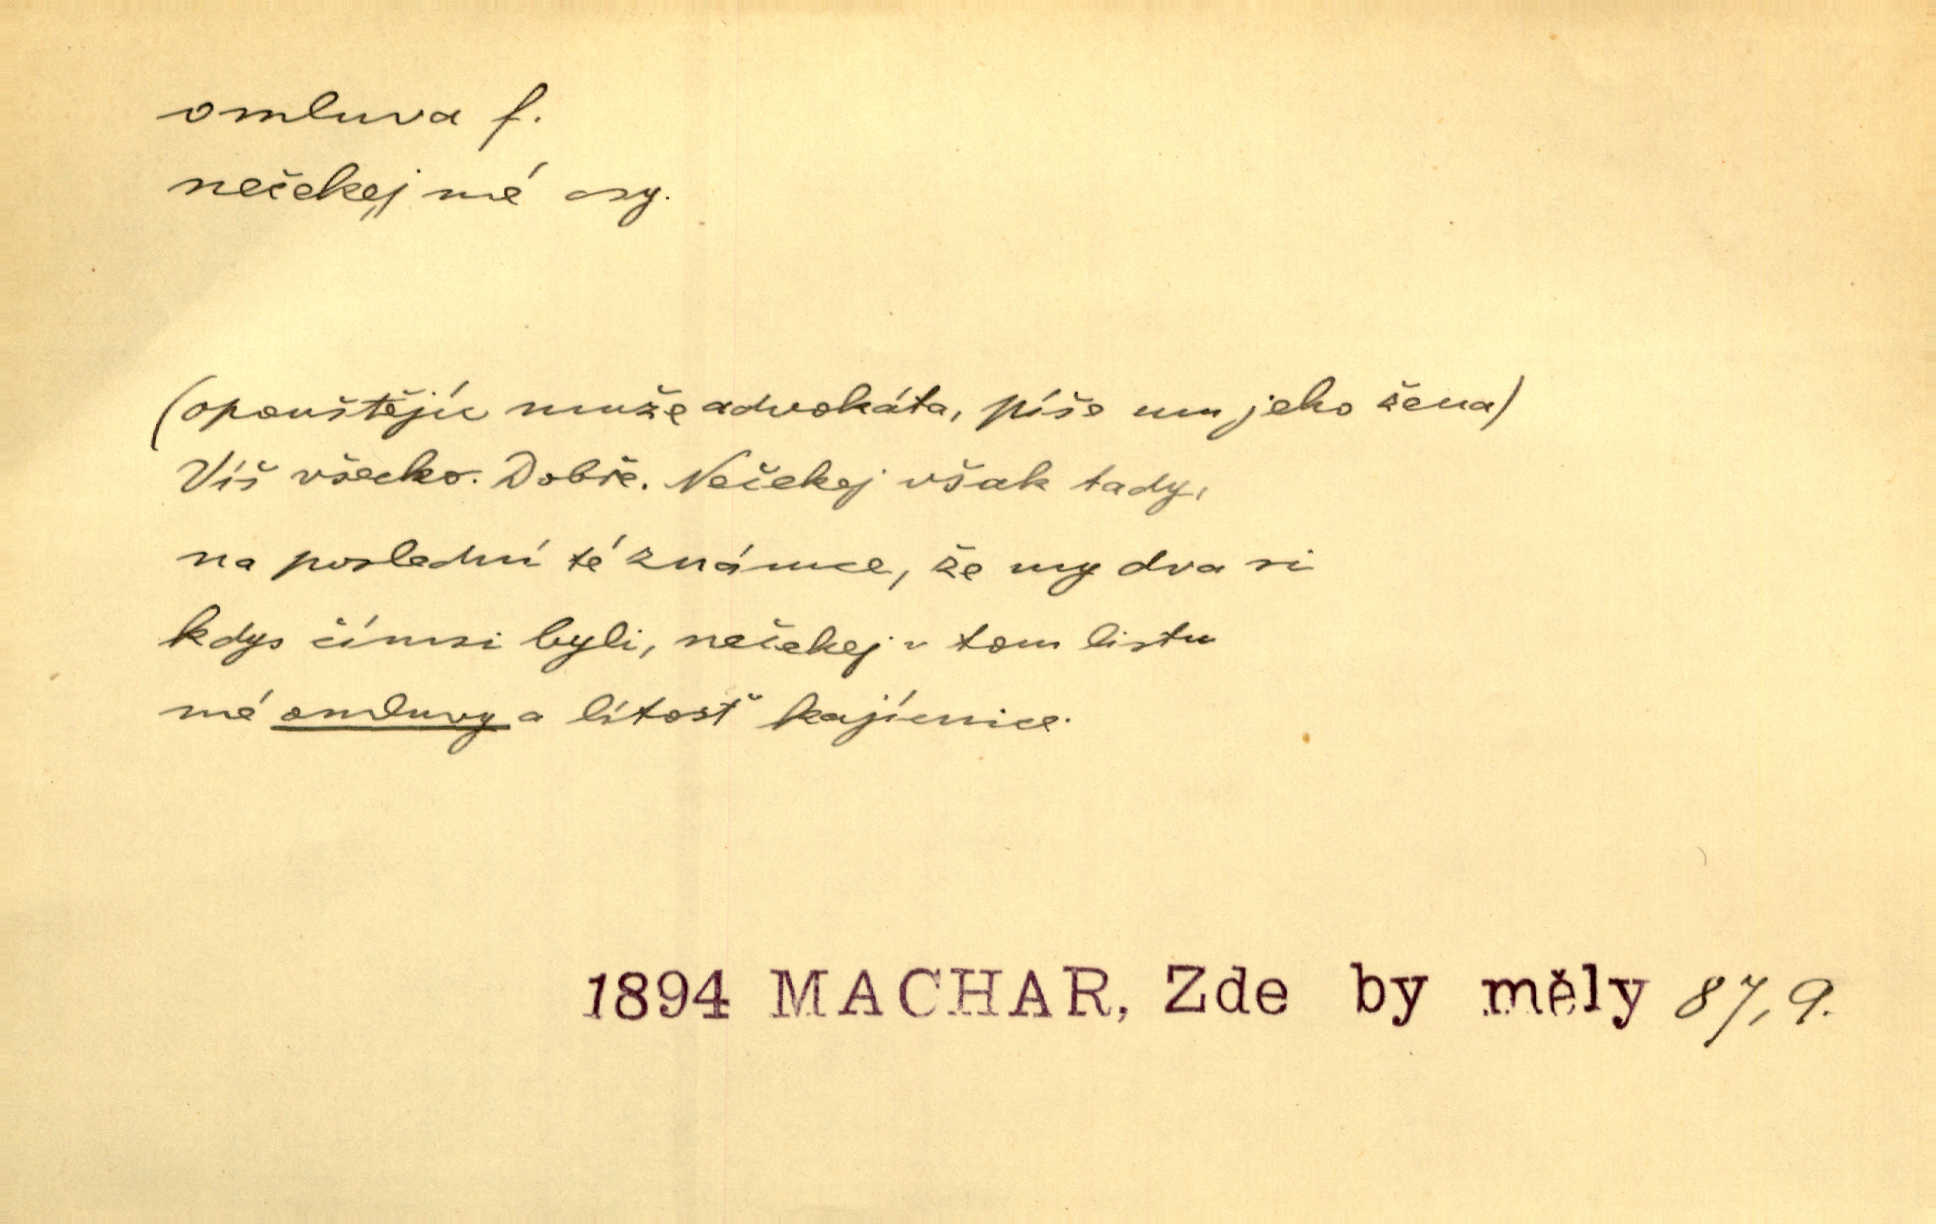 omluva f.
nečekej mé o-y.
(opouštějíc muže advokáta, píše mu jeho žena)
Víš všecko. Dobře. Nečekej však tady,
na poslední té známce, že my dva si
kdys čímsi byli, nečekej v tom listu
mé omluvy a lítosť kajícnice.
1894 MACHAR, Zde by měly 87, 9.